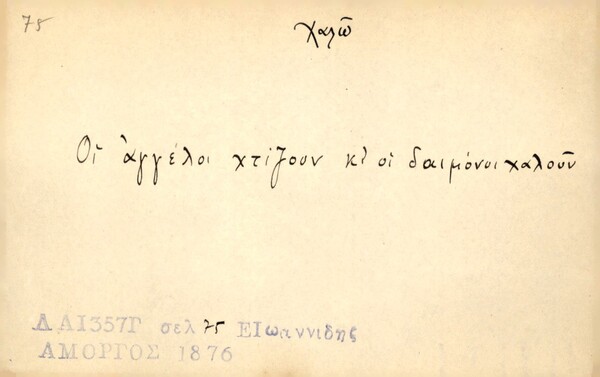 75
χαλῶ
Οἱ ἀγγέλοι χτίζουν κὶ οἱ δαιμόνοι χαλοῦν
ΔΑΙ357Γ σελ 75 ΕΙωαννιδης
ΑΜΟΡΓΟΣ 1876